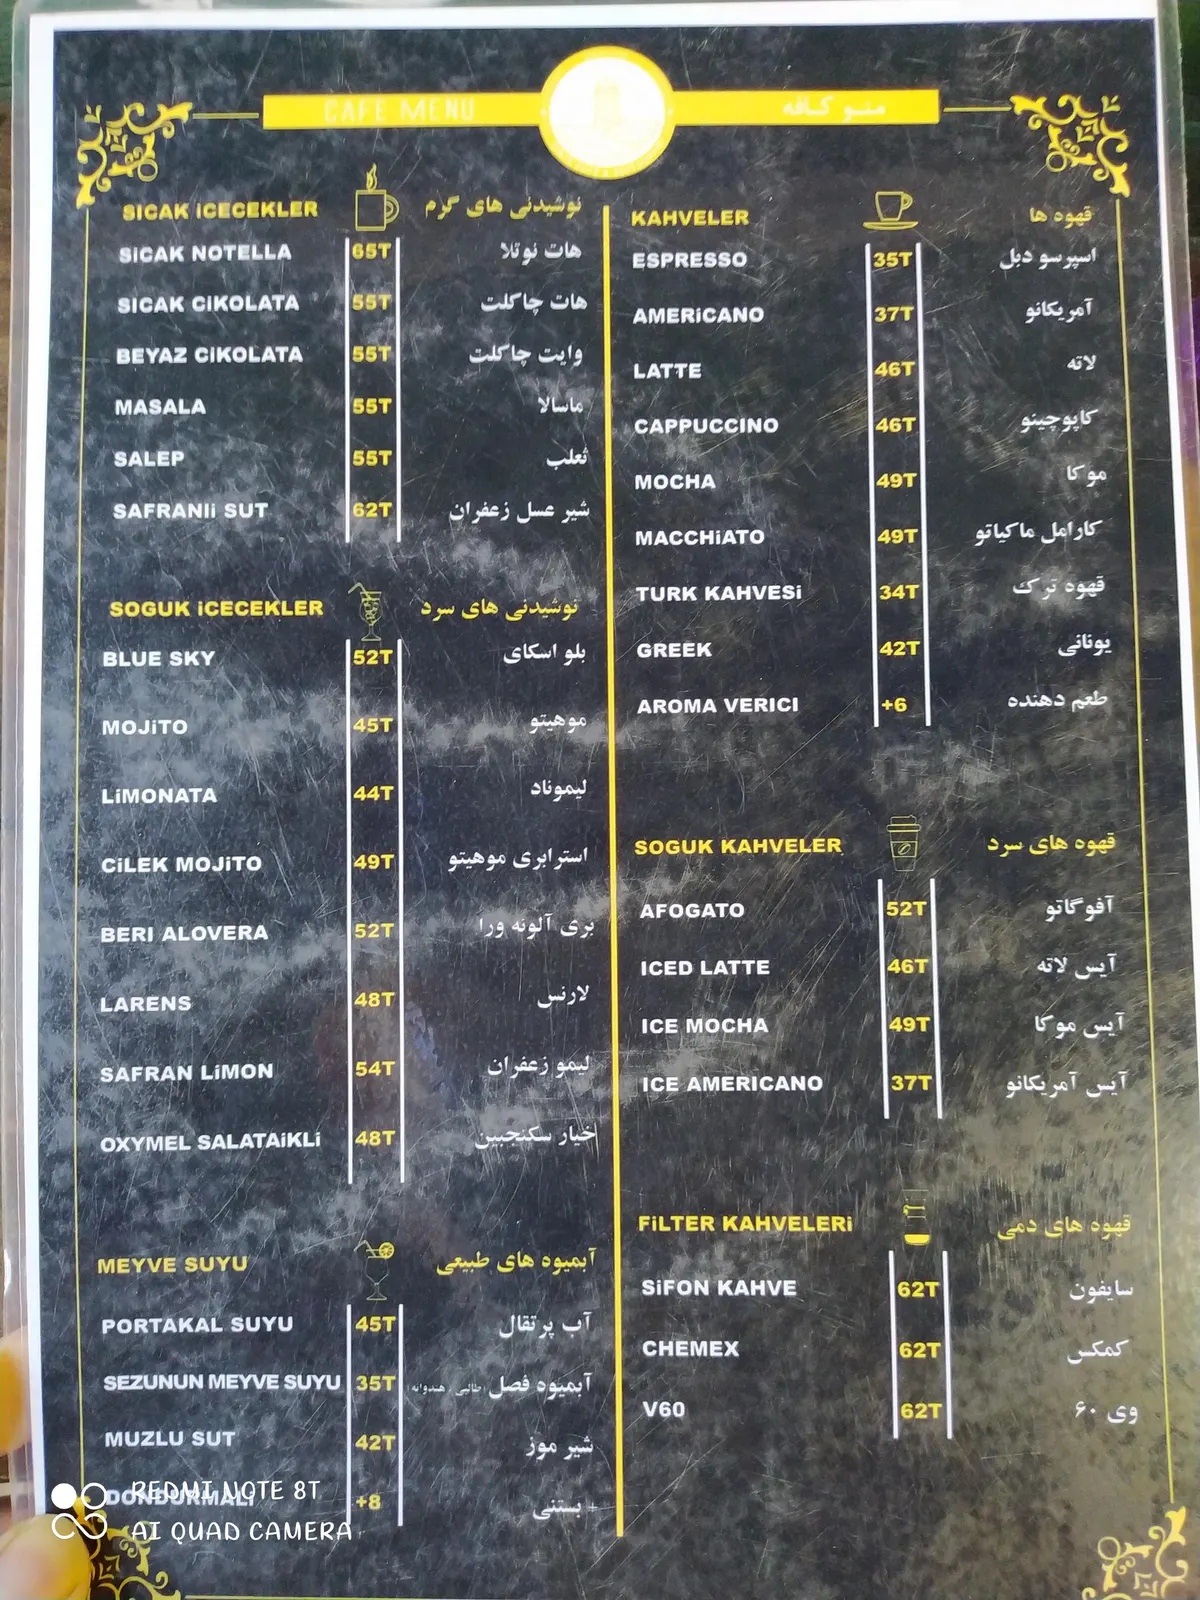 CAFE MENU
منو کافه
SICAK iCECEKLER نوشیدنی های گرم
SiCAK NOTELLA 65T هات نوتلا
SICAK CiKOLATA 55T هات چاکلت
BEYAZ CiKOLATA 55T وایت چاکلت
MASALA 55T ماسالا
SALEP 55T ثعلب
SAFRANIi SUT 62T شیر عسل زعفران
SOGUK iCECEKLER نوشیدنی های سرد
BLUE SKY 52T بلو اسکای
MOJiTO 45T موهیتو
LiMONATA 44T لیموناد
CiLEK MOJiTO 49T استرابری موهیتو
BERI ALOVERA 52T بری آلوئه ورا
LARENS 48T لارنس
SAFRAN LiMON 54T لیمو زعفران
OXYMEL SALATAiKLi 48T خیار سکنجبین
MEYVE SUYU آبمیوه های طبیعی
PORTAKAL SUYU 45T آب پرتقال
SEZUNUN MEYVE SUYU 35T آبمیوه فصل (طالبی، هندوانه)
MUZLU SUT 42T شیر موز
DONDURMALI +8 + بستنی
KAHVELER قهوه ها
ESPRESSO 35T اسپرسو دبل
AMERiCANO 37T آمریکانو
LATTE 46T لاته
CAPPUCCINO 46T کاپوچینو
MOCHA 49T موکا
MACCHiATO 49T کارامل ماکیاتو
TURK KAHVESi 34T قهوه ترک
GREEK 42T یونانی
AROMA VERICI +6 طعم دهنده
SOGUK KAHVELER قهوه های سرد
AFOGATO 52T آفوگاتو
ICED LATTE 46T آیس لاته
ICE MOCHA 49T آیس موکا
ICE AMERICANO 37T آیس آمریکانو
FiLTER KAHVELERi قهوه های دمی
SiFON KAHVE 62T سایفون
CHEMEX 62T کمکس
V60 62T وی ۶۰
REDMI NOTE 8T
AI QUAD CAMERA